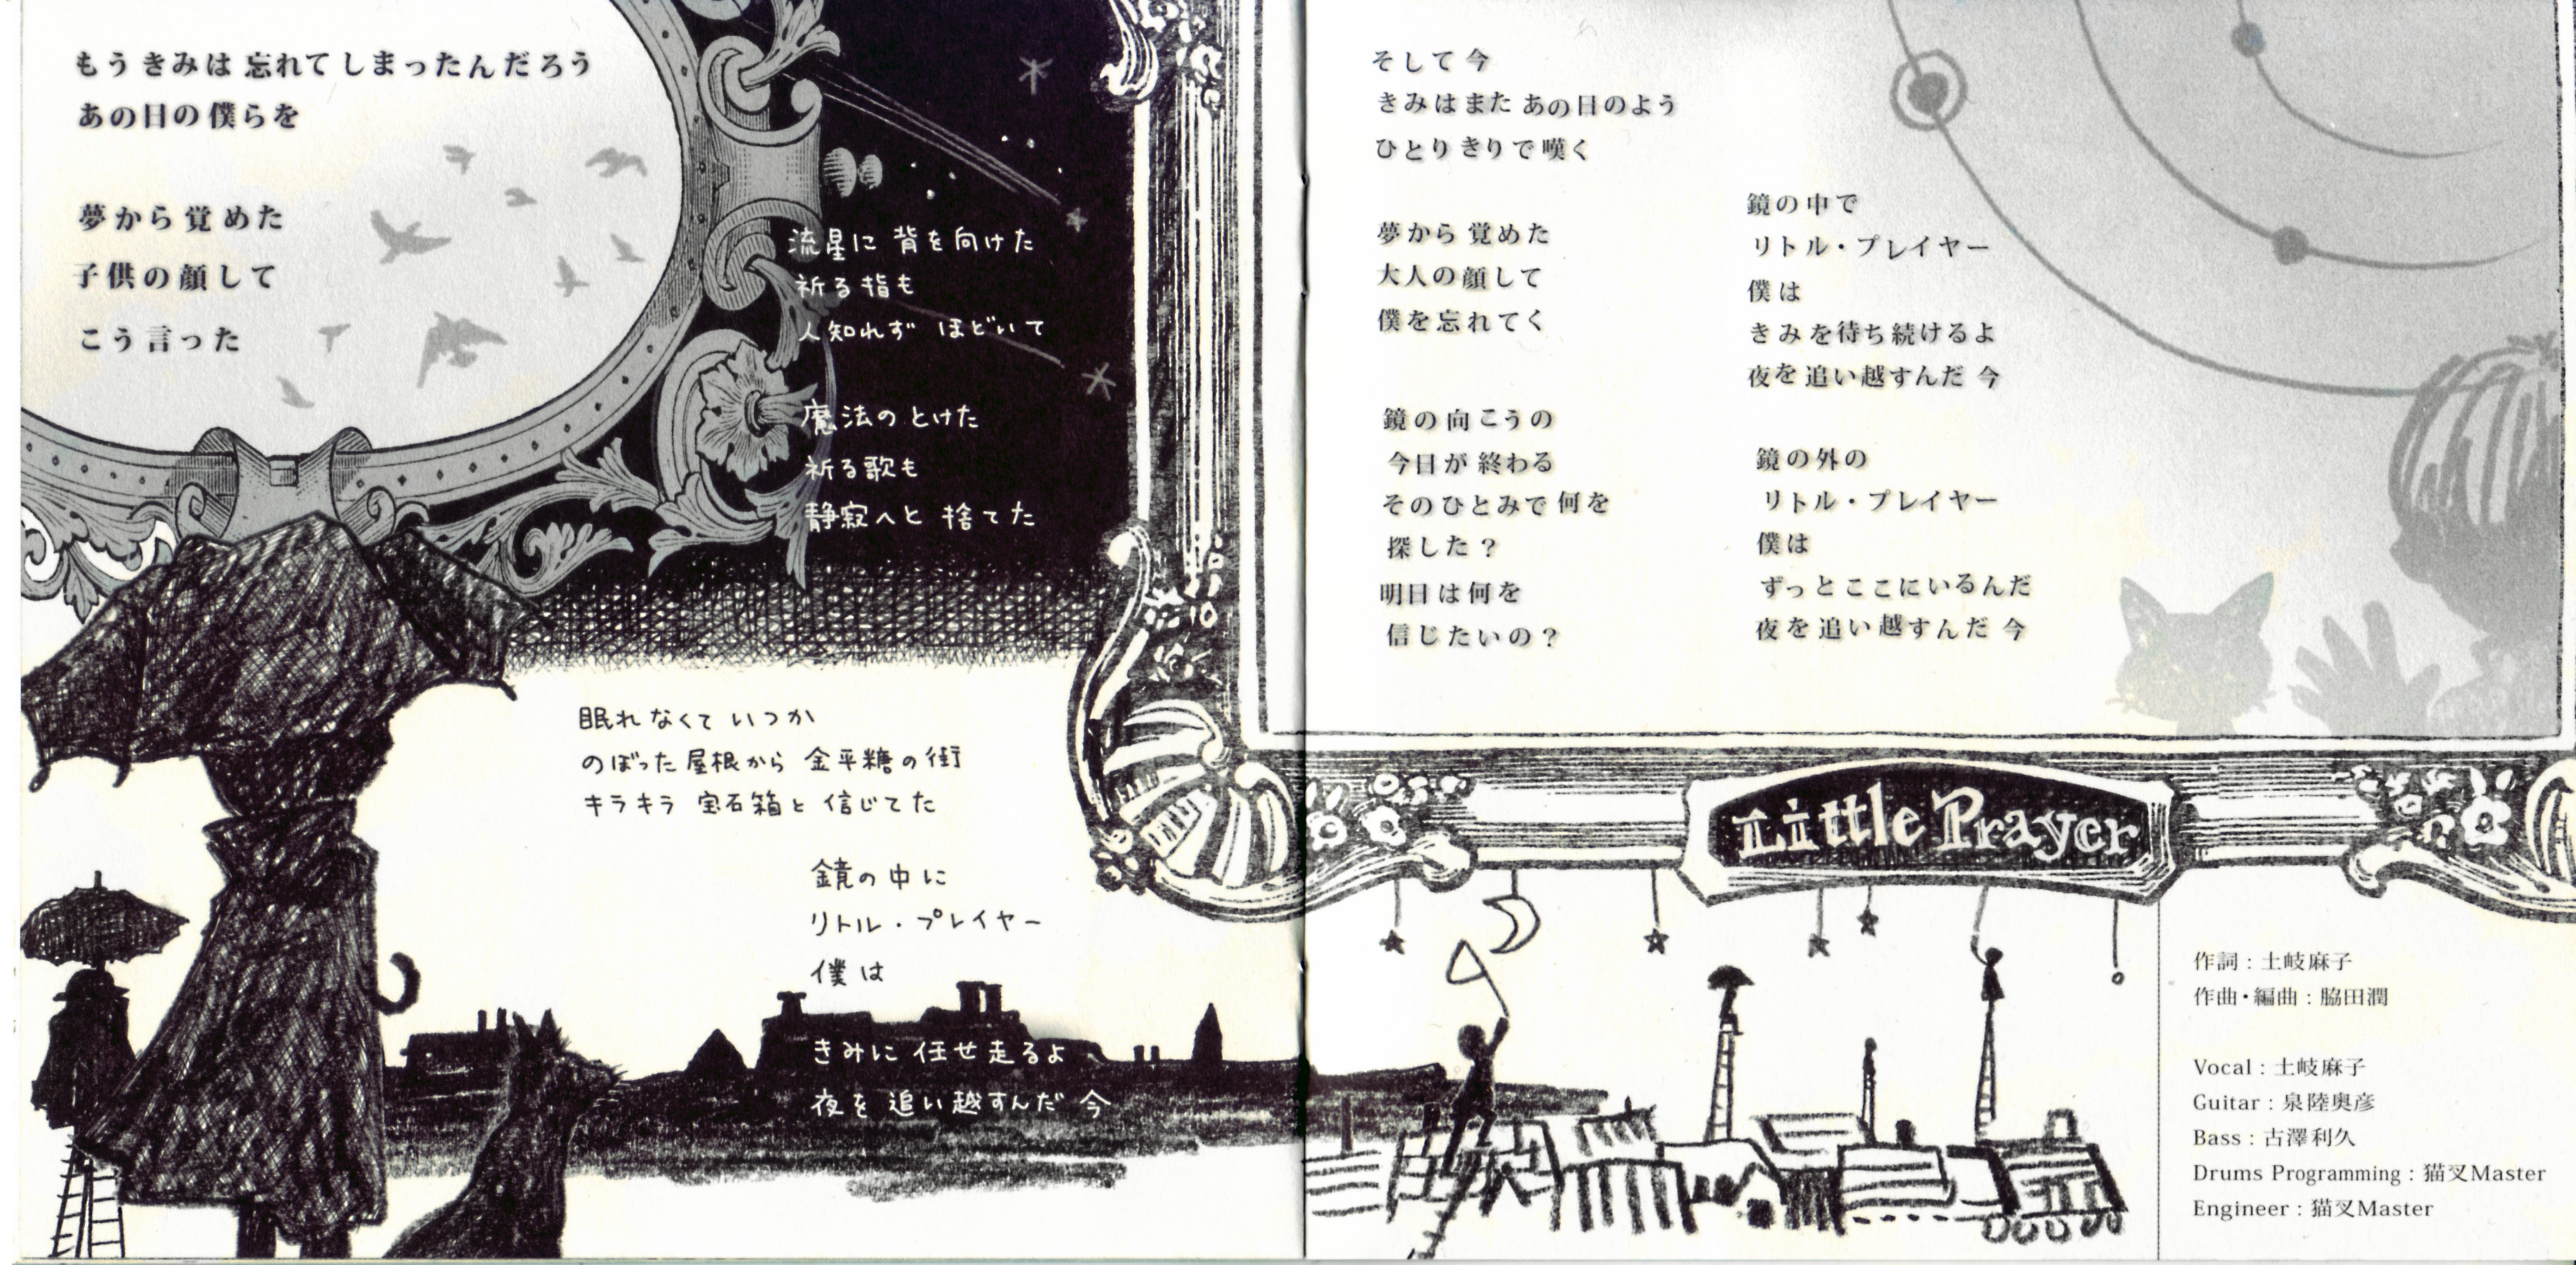 もうきみは 忘れてしまったんだろう
あの日の僕らを
夢から覚めた
子供の顔して
こう言った
流星に 背を向けた
祈る指も
人知れず ほどいて
魔法の とけた
祈る歌も
静寂へと 捨てた
眠れなくて いつか
のぼった屋根から 金平糖の街
キラキラ 宝石箱と 信じてた
鏡の中に
リトル・プレイヤー
僕は
きみに 任せ走るよ
夜を 追い越すんだ 今
そして今
きみはまた あの日のよう
ひとりきりで嘆く
夢から 覚めた
大人の顔して
僕を忘れてく
鏡の向こうの
今日が 終わる
そのひとみで 何を
探した？
明日は何を
信じたいの？
鏡の中で
リトル・プレイヤー
僕は
きみを待ち続けるよ
夜を 追い越すんだ 今
鏡の外の
リトル・プレイヤー
僕は
ずっとここにいるんだ
夜を 追い越すんだ 今
Little Prayer
作詞：土岐麻子
作曲・編曲：脇田潤
Vocal：土岐麻子
Guitar：泉陸奥彦
Bass：古澤利久
Drums Programming：猫叉Master
Engineer：猫叉Master